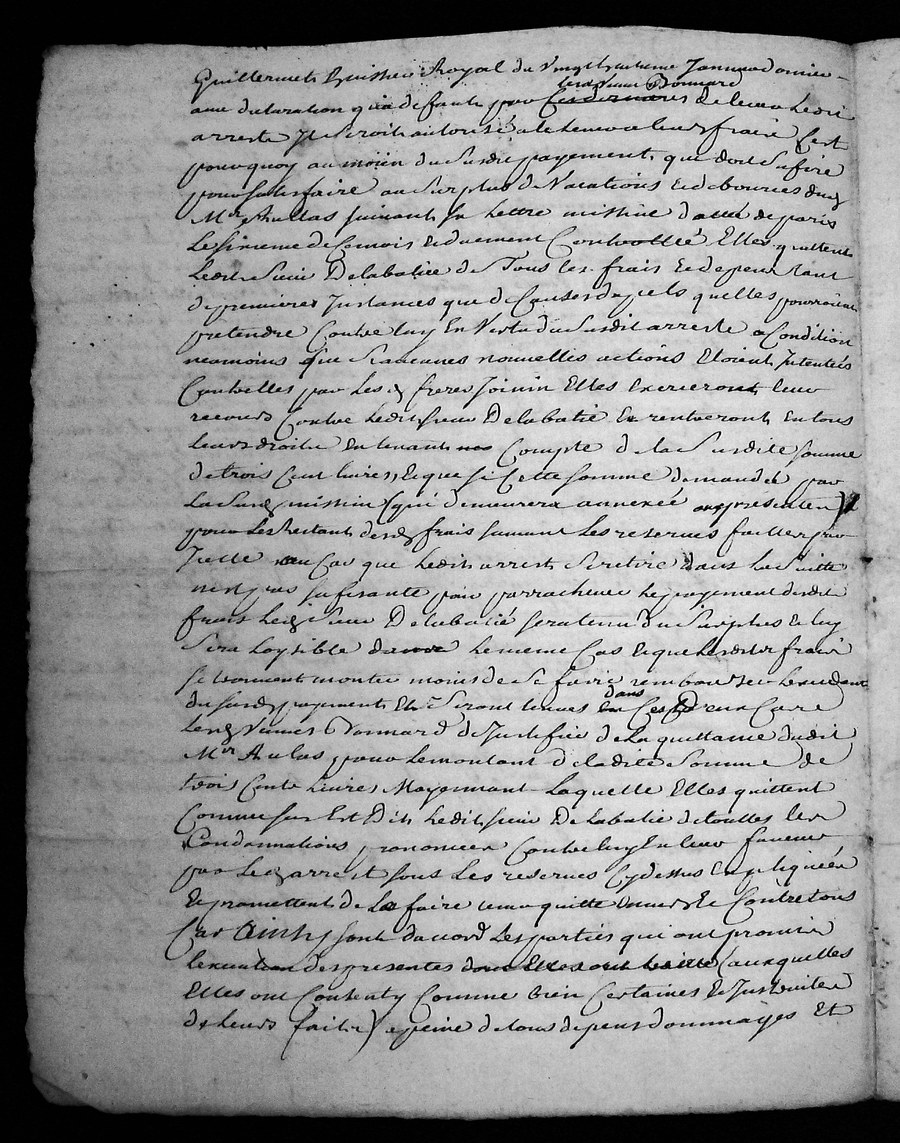 Guillermet huissier Royal du vingt huitieme Janvier dernier
avec declaration qu'a defaut par lesd. Veuves Bonnard de lever ledit
arrest Il seroit autorisé a le lever a leurs frais C'est
pourquoy au moïen du susdit payement que doit sufire
pour satisfaire au surplus de Vacations et debources dud.
Me Aulas suivant sa lettre missive datté de paris
Le sixieme de ce mois et duement Controllé Elles quittent
Ledit sieur Delabatie de Tous les frais et depens tant
de premieres Instances que de Causes d'apels quelles pourroient
pretendre Contre luy En Vertu du susdit arreste a Condition
neamoins que si aucunes nouvelles actions Etoient Intentées
Contr'elles par les d. freres Joinin Elles exerceront leur
recours Contre ledit sieur Delabatie et rentreront en tous
leurs droits En tenant Compte de la susdite somme
de trois Cent livres, Et que si Cette somme demandée par
La susd. missive (qui demeurera annexée aux presentes)
pour les restant desd. frais suivant les reserves faittes par
Icelle au Cas que ledit arrest se retire dans la suitte
n'est pas sufisante pour parrachever le payement desdits
frais led. sieur Delabatié sera tenu du surplus et luy
sera loysible dans le meme Cas et que lesdits frais
se trouvent monter moins de se faire rembourser l'excedant
du susd. payement Et seront tenues dans Ces deux Cas
Lesd. Veuves Bonnard de Justifier de la quittance dudit
Mr Aulas pour le montant de ladite somme de
trois Cents livres Moyennant Laquelle Elles quittent
Comme sus Est Dit ledit sieur Delabatie de touttes les
Condamnations prononcées Contre luy En leur faveur
par led. arrest sous les reserves Cy dessus Expliquées
Et promettent de le faire tenir quitte Envers Et Contre tous
Car Ainsy sont d'accord Les parties qui ont promis
l'execution des presentes (auxquelles
Elles ont Consenty Comme bien Certaines Et Justruites
de leurs faits) a peine de tous depens dommages Et